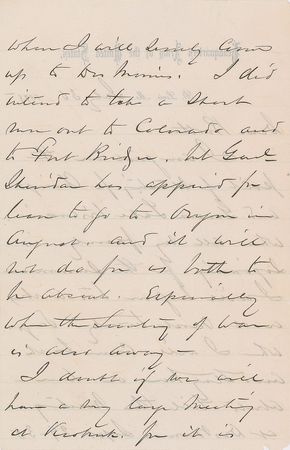 when I will surely come
up to Des Moines. I did
intend to take a short
run out to Colorado and
to Fort Bridger. but Genl
Sheridan has applied for
leave to go to Oregon in
August. and it will
not do for us both to
be absent. Especially
when the Secretary of War
is also away -
I doubt if we will
have a very large meeting
at Keokuk. for it is